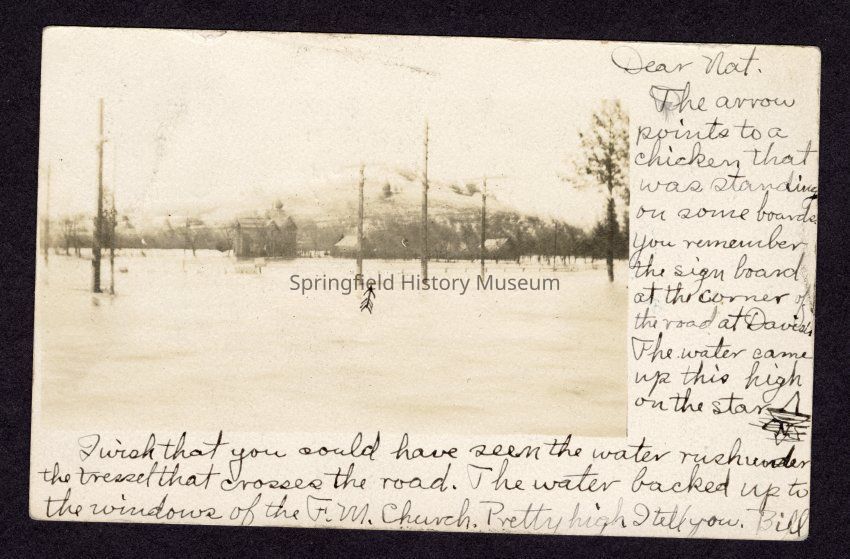 Dear Nat.
The arrow
points to a
chicken that
was standing
on some boards
you remember
the sign board
at the corner of
the road at Davis's.
The water came
up this high
on the star
Springfield History Museum
I wish that you could have seen the water rush under
the tressel that crosses the road. The water backed up to
the windows of the F.M. Church. Pretty high I tell you. Bill